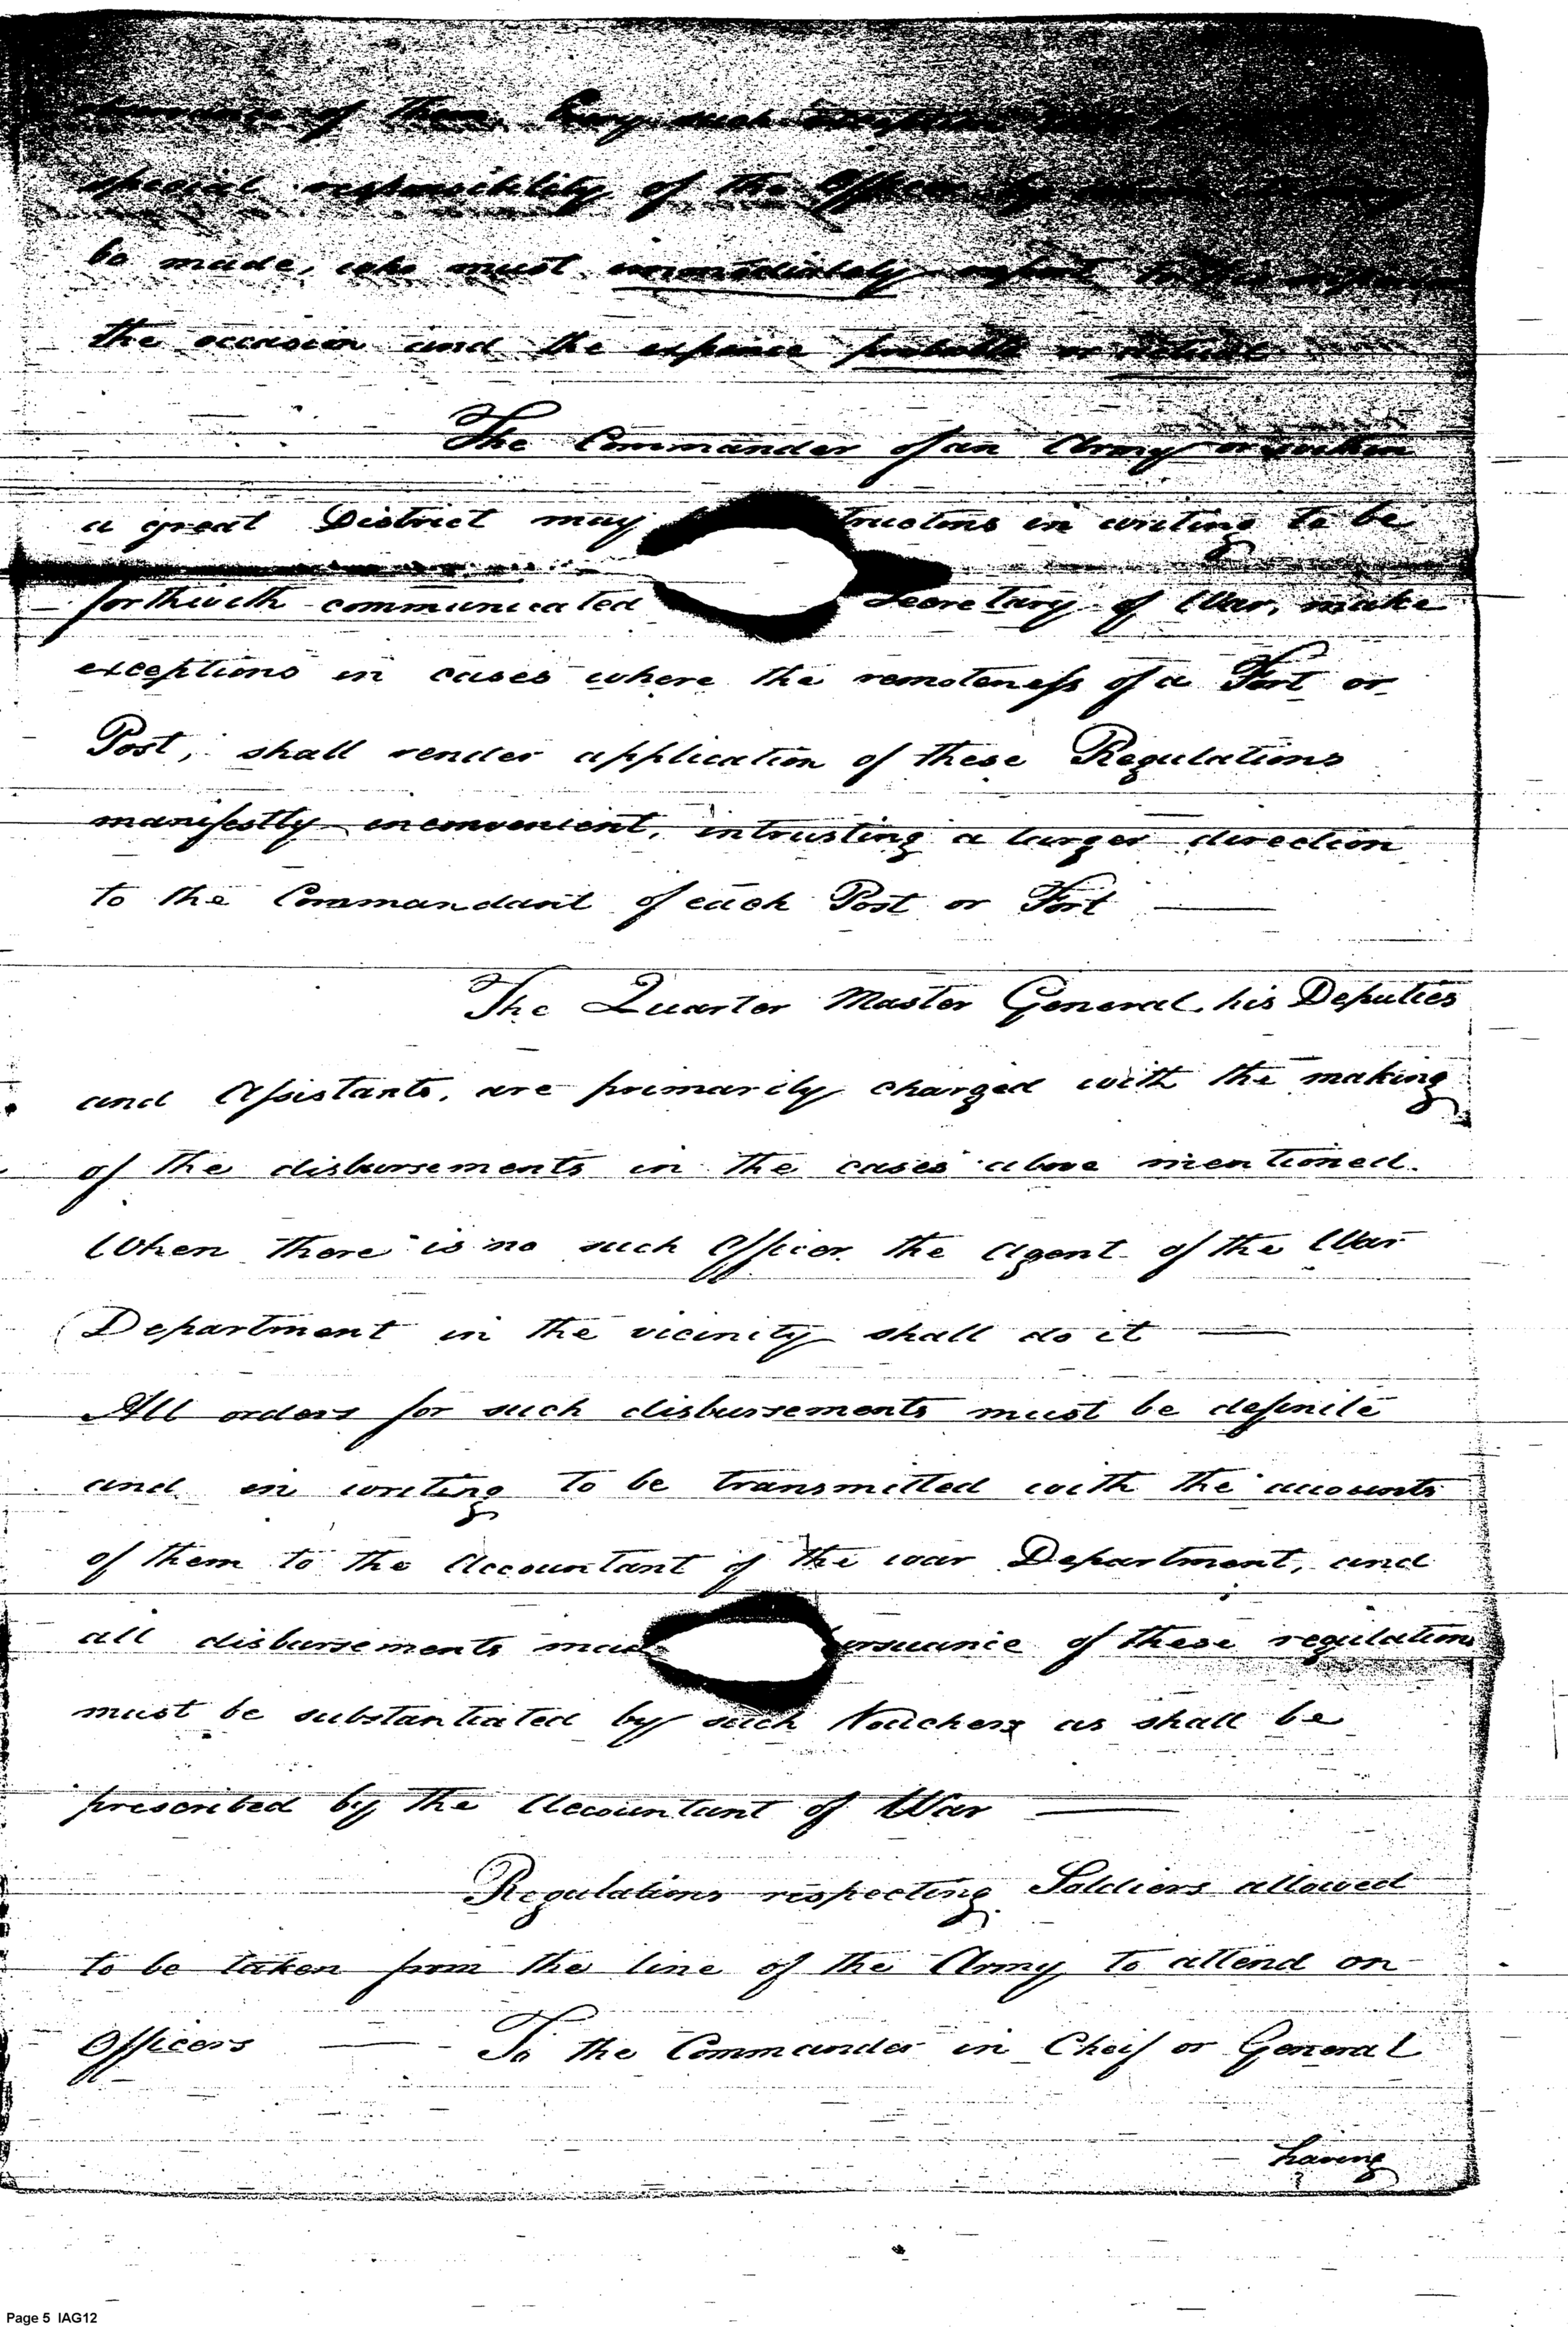 of them. Every such exception
special responsibility of the Officer by whom it may
be made, who must immediately report to the
the occasion and the expence probable or actual
The Commander of an Army or within
a great District may tructions in writing to be
forthwith communicated Secretary of War, make
exceptions in cases where the remoteness of a Fort or
Post, shall render application of these Regulations
manifestly inconvenient, intrusting a larger direction
to the Commandant of each Post or Fort —
The Quarter Master General, his Deputies
and Assistants, are primarily charged with the making
of the disbursements in the cases above mentioned.
When there is no such Officer the agent of the War
Department in the vicinity shall do it —
All orders for such disbursements must be definite
and in writing to be transmitted with the accounts
of them to the Accountant of the war Department, and
all disbursements mad ursuance of these regulations
must be substantiated by such Vouchers as shall be
prescribed by the Accountant of War —
Regulations respecting Soldiers allowed
to be taken from the line of the Army to attend on
Officers — To the Commander in Cheif or General
having
Page 5 IAG12